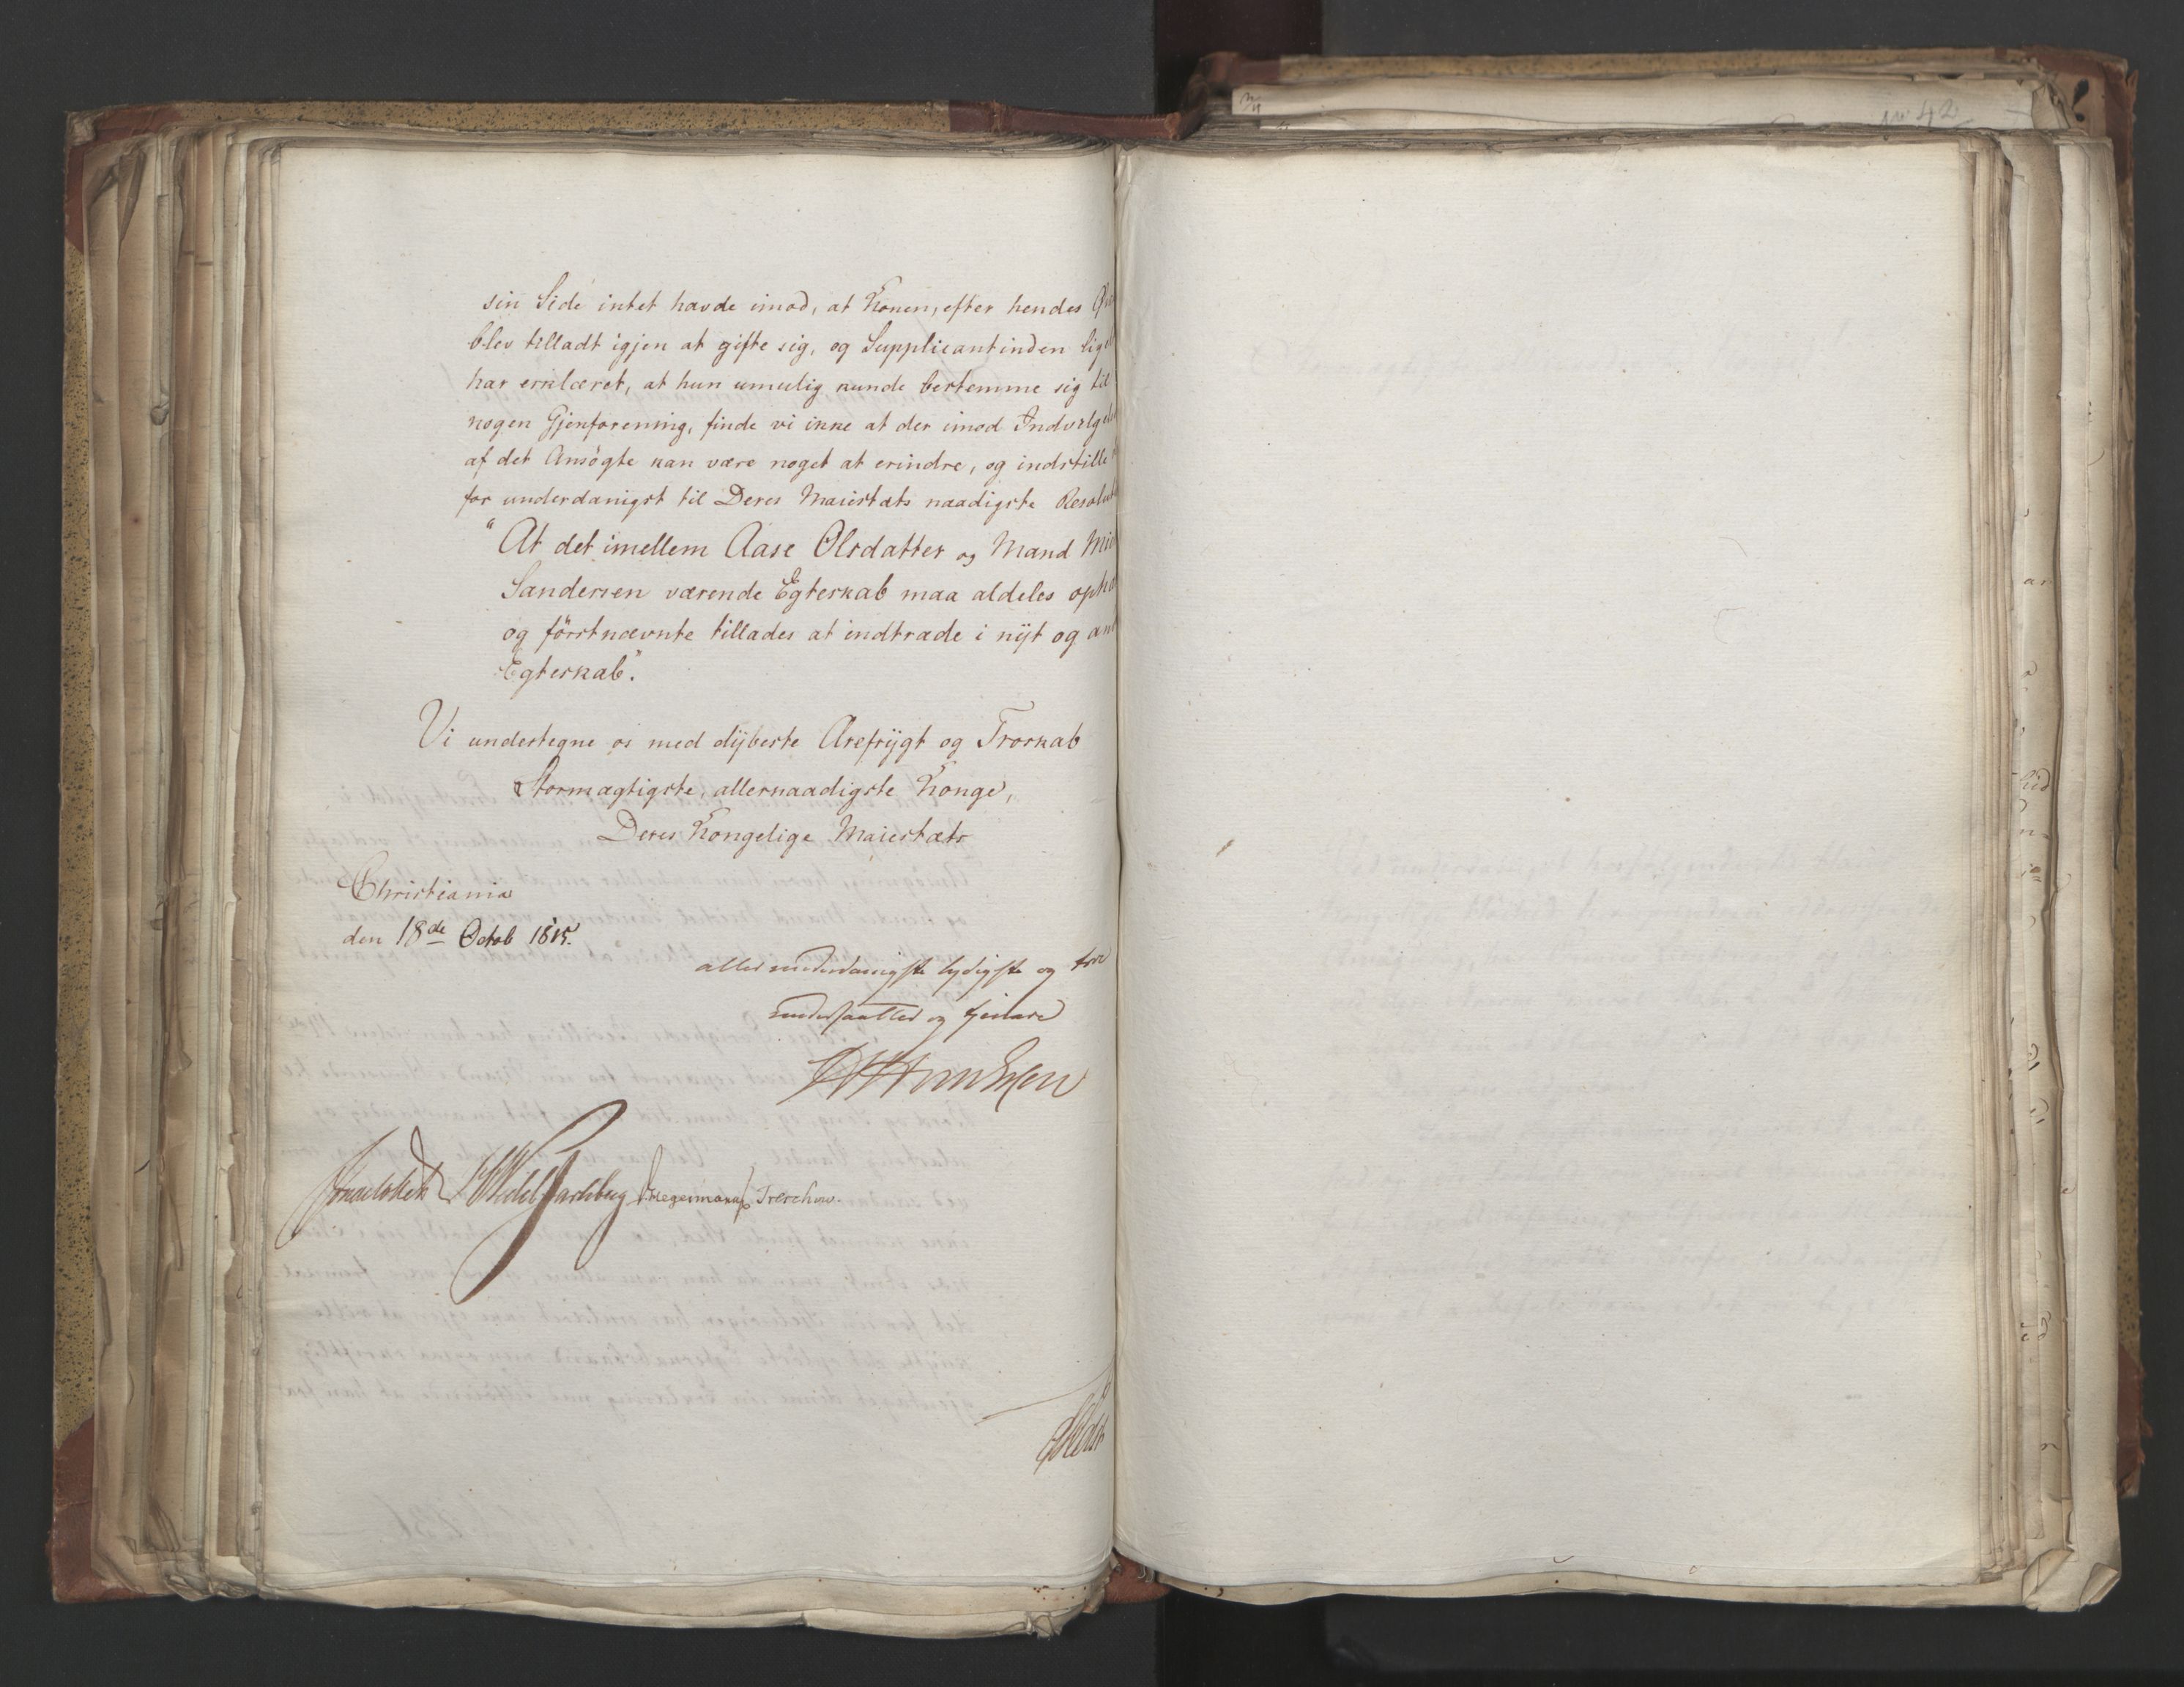 sin Side intet havde imod, at Konen, efter hendes
blev tilladt igjen at gifte sig, og Supplicantinden lige
har erklæret, at hun umulig kunde bestemme sig til
nogen Gjenforening, finde vi ikke at der imod Indvilg
af det Ansögte kan være noget at erindre, og indstille
for underdanigst til Deres Maiestæts naadigste Resolut
"At det imellem Aase Olsdatter og Mand
Sandersen værende Egteskab maa aldeles ophæ
og förstnævnte tillades at indtræde i nÿt og
Egteskab".
Vi undertegne os med dÿbeste Ærefrÿgt og Troskab
Stormægtigste, allernaadigste Konge,
Deres Kongelige Maiestæts
Christiania
den 18de Octob 1815.
allerunderdanigste lydigste og troe
undersaatter og tjenere
Wedel Jarlsberg Hegermann Treschow.
No 42